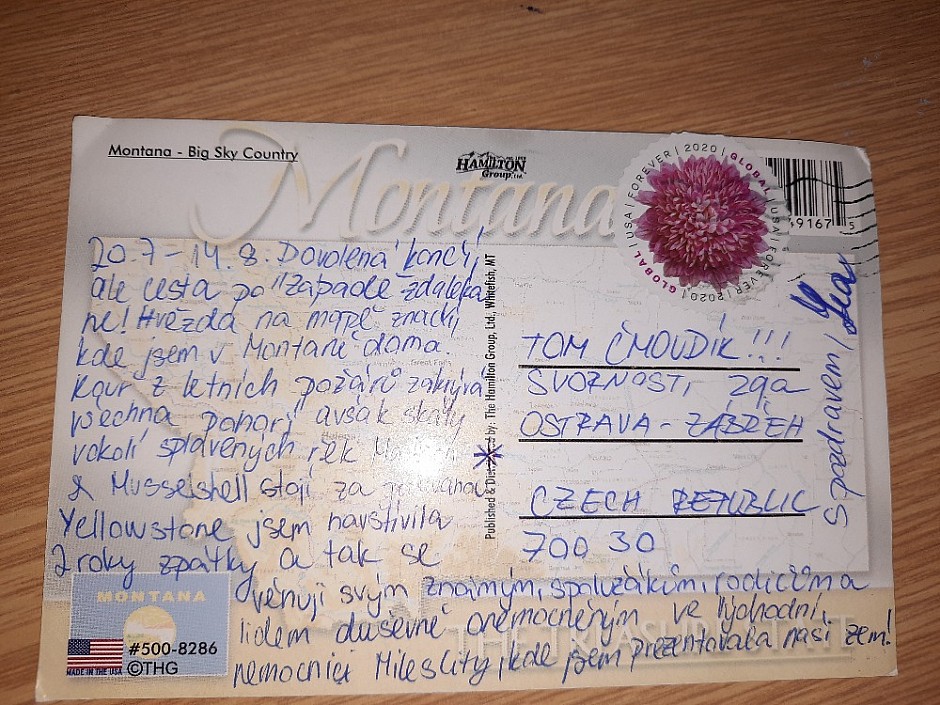 Montana - Big Sky Country
HAMILTON
Group, Ltd.
Montana
GLOBAL | USA | FOREVER | 2020 | GLOBAL | USA | FOREVER | 2020 |
9167 5
20.7 - 14.8. Dovolená končí,
ale cesta po Západě zdaleka
ne! Hvězda na mapě značí,
kde jsem v Montaně doma.
Kouř z letních požárů zakrývá
všechna pohoří avšak skály
vokolí splavených řek
& Musselshell stojí za
Yellowstone jsem navštívila
2 roky zpátky a tak se
věnuji svým známým, spolužákům, rodičům a
lidem duševně onemocněným ve Východní
nemocnici Miles City, kde jsem prezentovala naši zem!
Published & Dist by: The Hamilton Group, Ltd., Whitefish, MT
TOM ČMOUDÍK!!!
SVORNOSTI, 29a
OSTRAVA - ZÁBŘEH
CZECH REPUBLIC
700 30
S pozdravem,
THE TREASURE STATE
MONTANA
MADE IN THE USA
#500-8286
©THG